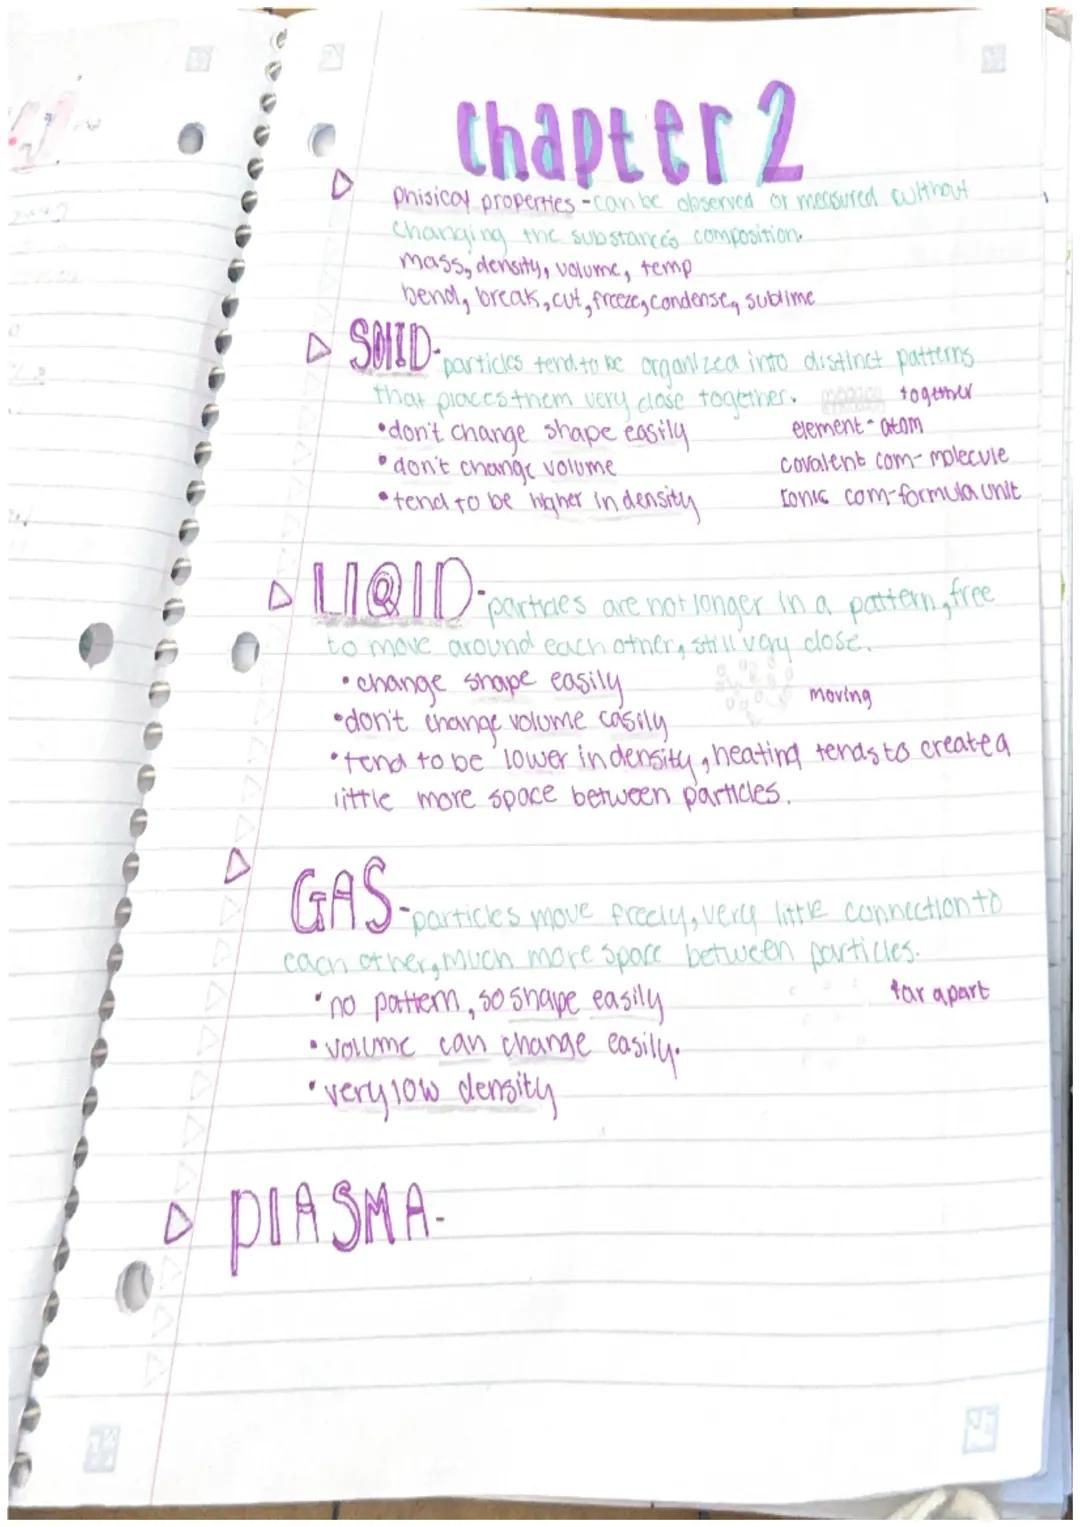 Chapter 2
Phisical properties - can be observed or measured without
changing the substance's composition.
mass, density, volume, temp
bend, break, cut, freeze, condense, sublime
SOLID- particles tend to be organized into distinct patterns
that places them very close together. together
•don't change shape easily element - atom
•don't change volume covalent com- molecule
•tend to be higher in density Ionic com-formula unit
LIQID- particles are not longer in a pattern, free
to move around each other, still very close.
•change shape easily moving
•don't change volume easily
•tend to be lower in density, heating tends to create a
little more space between particles.
GAS- particles move freely, very little connection to
each other, much more space between particles.
•no pattern, so shape easily far apart
•volume can change easily.
•very low density
PLASMA-